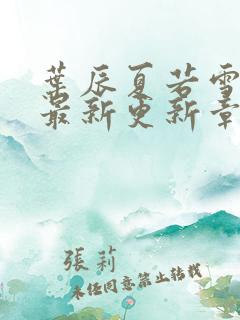 葉辰夏若雪
最新更新章
張莉
未经同意禁止转载